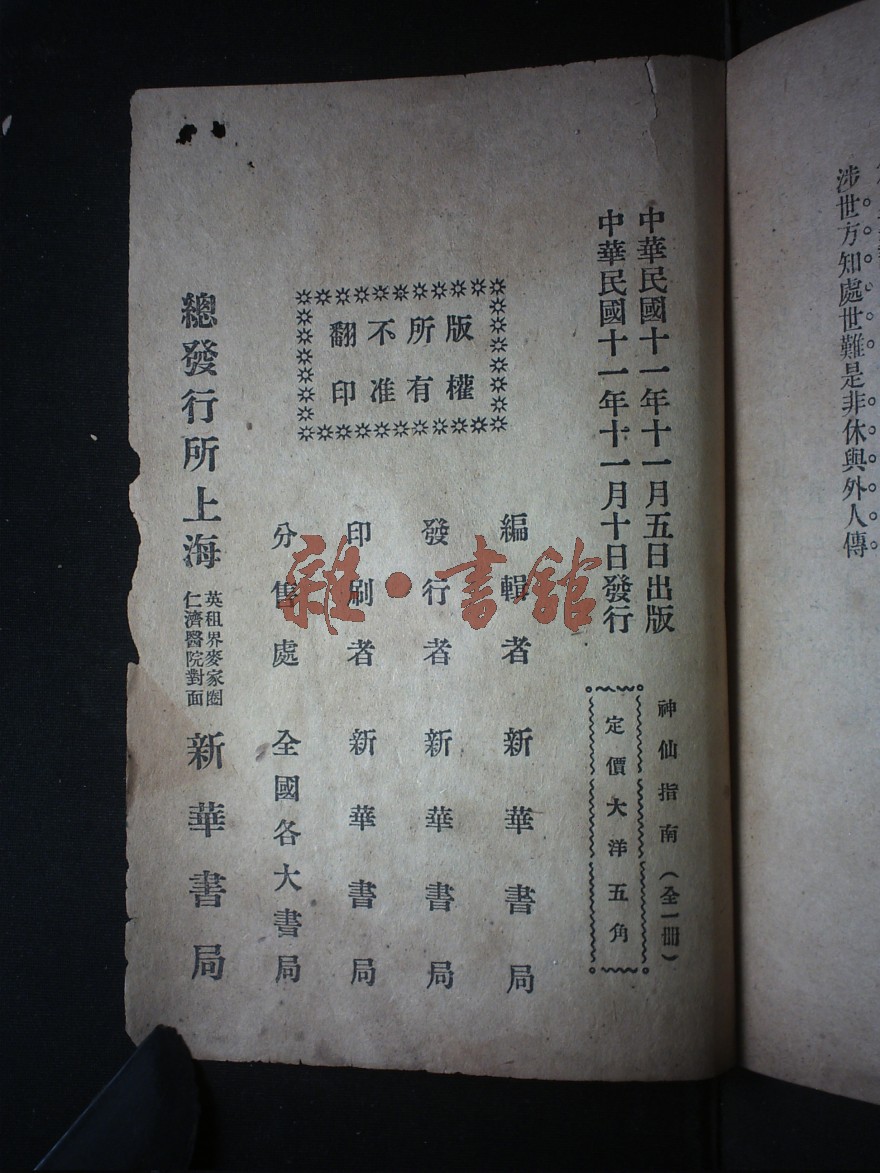 涉世方知處世難是非休與外人傳
中華民國十一年十一月五日出版
中華民國十一年十一月十日發行
神仙指南（全一冊）
定價大洋五角
版權
所有
不准
翻印
編輯者新華書局
發行者新華書局
印刷者新華書局
分售處全國各大書局
總發行所上海
英租界麥家圈
仁濟醫院對面
新華書局
雜·書館